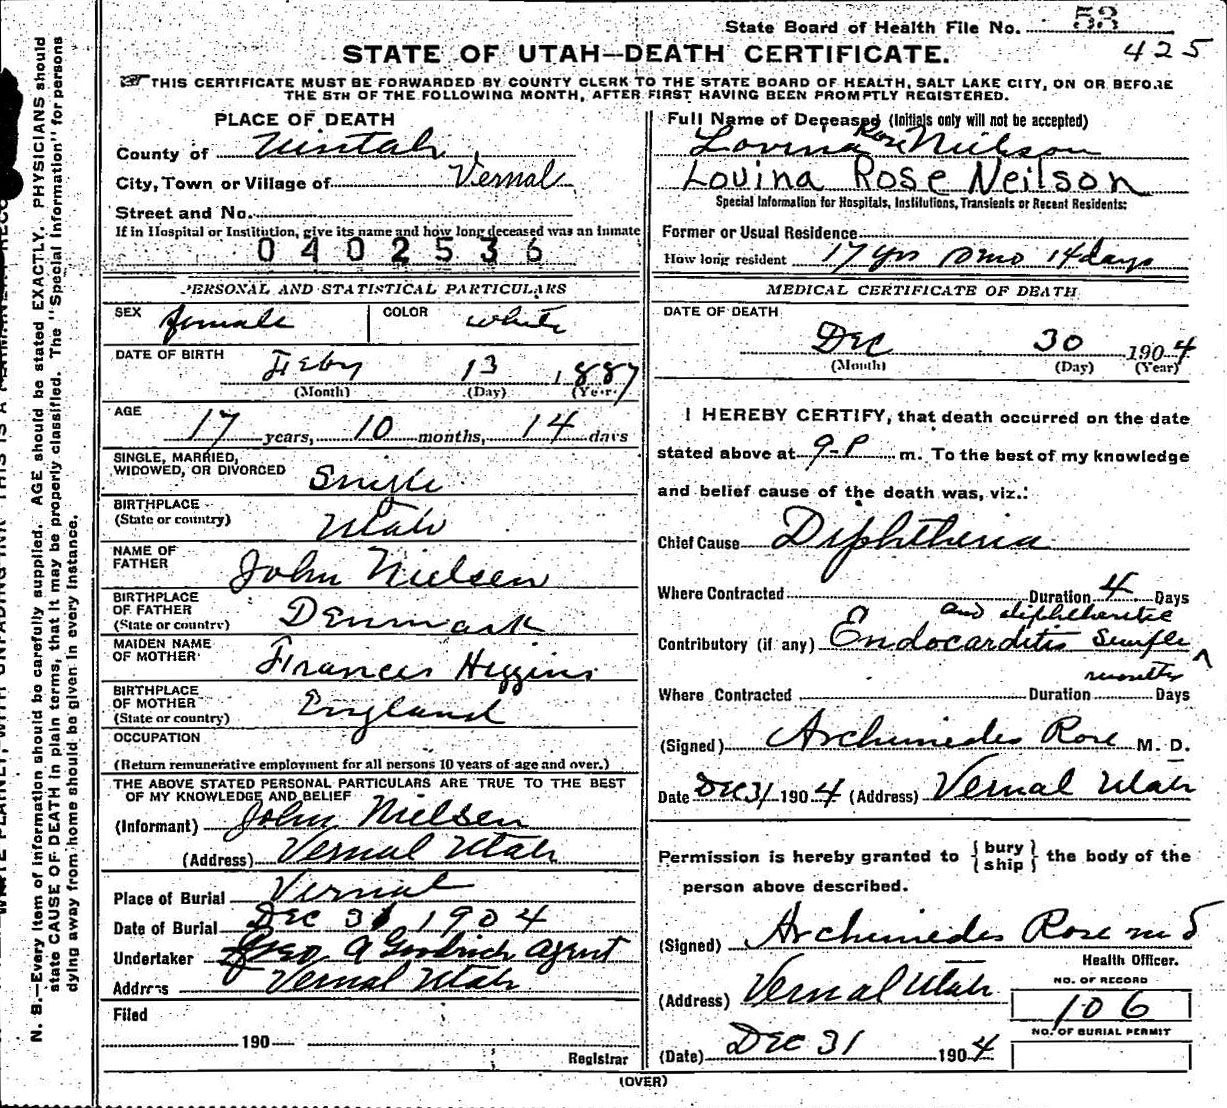 State Board of Health File No. 53
425
STATE OF UTAH—DEATH CERTIFICATE.
THIS CERTIFICATE MUST BE FORWARDED BY COUNTY CLERK TO THE STATE BOARD OF HEALTH, SALT LAKE CITY, ON OR BEFORE
THE 5TH OF THE FOLLOWING MONTH, AFTER FIRST HAVING BEEN PROMPTLY REGISTERED.
PLACE OF DEATH
County of Uintah
City, Town or Village of Vernal
Street and No.
If in Hospital or Institution, give its name and how long deceased was an Inmate
0402536
PERSONAL AND STATISTICAL PARTICULARS
SEX female COLOR white
DATE OF BIRTH Feby 13 1887
(Month) (Day) (Year)
AGE
17 years, 10 months, 14 days
SINGLE, MARRIED,
WIDOWED, OR DIVORCED Single
BIRTHPLACE
(State or country) Utah
NAME OF
FATHER John Nielsen
BIRTHPLACE
OF FATHER
(State or country) Denmark
MAIDEN NAME
OF MOTHER Frances Higgins
BIRTHPLACE
OF MOTHER
(State or country) England
OCCUPATION
(Return remunerative employment for all persons 10 years of age and over.)
THE ABOVE STATED PERSONAL PARTICULARS ARE TRUE TO THE BEST
OF MY KNOWLEDGE AND BELIEF
(Informant) John Nielsen
(Address) Vernal Utah
Place of Burial Vernal
Date of Burial Dec 31 1904
Undertaker Geo A Goodrich agent
Address Vernal Utah
Filed
190
Registrar
Full Name of Deceased (Initials only will not be accepted)
Lovina Rose Nielson
Louina Rose Neilson
Special Information for Hospitals, Institutions, Transients or Recent Residents:
Former or Usual Residence
How long resident 17 yrs 10 mo 14 days
MEDICAL CERTIFICATE OF DEATH
DATE OF DEATH
Dec 30 1904
(Month) (Day) (Year)
I HEREBY CERTIFY, that death occurred on the date
stated above at 9-P m. To the best of my knowledge
and belief cause of the death was, viz.:
Chief Cause Diphtheria
Where Contracted Duration 4 Days
and diphtheretic
Contributory (if any) Endocarditis simple
Where Contracted Duration Days
(Signed) Archimedes Rose M. D.
Date Dec 31 1904 (Address) Vernal Utah
Permission is hereby granted to { bury ship } the body of the
person above described.
(Signed) Archimedes Rose M D
Health Officer.
(Address) Vernal Utah
NO. OF RECORD
106
NO. OF BURIAL PERMIT
(Date) Dec 31 1904
(OVER)
N. B.—Every item of information should be carefully supplied. AGE should be stated EXACTLY. PHYSICIANS should
state CAUSE OF DEATH in plain terms, that it may be properly classified. The "Special Information" for persons
dying away from home should be given in every instance.